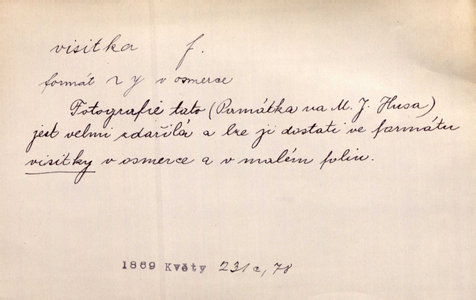 visitka f.
formát v osmerce
Fotografie tato (Památka na M. J. Husa)
jest velmi zdařilá a lze ji dostati ve formátu
visitky v osmerce a v malém foliu.
1869 Květy 231c, 78